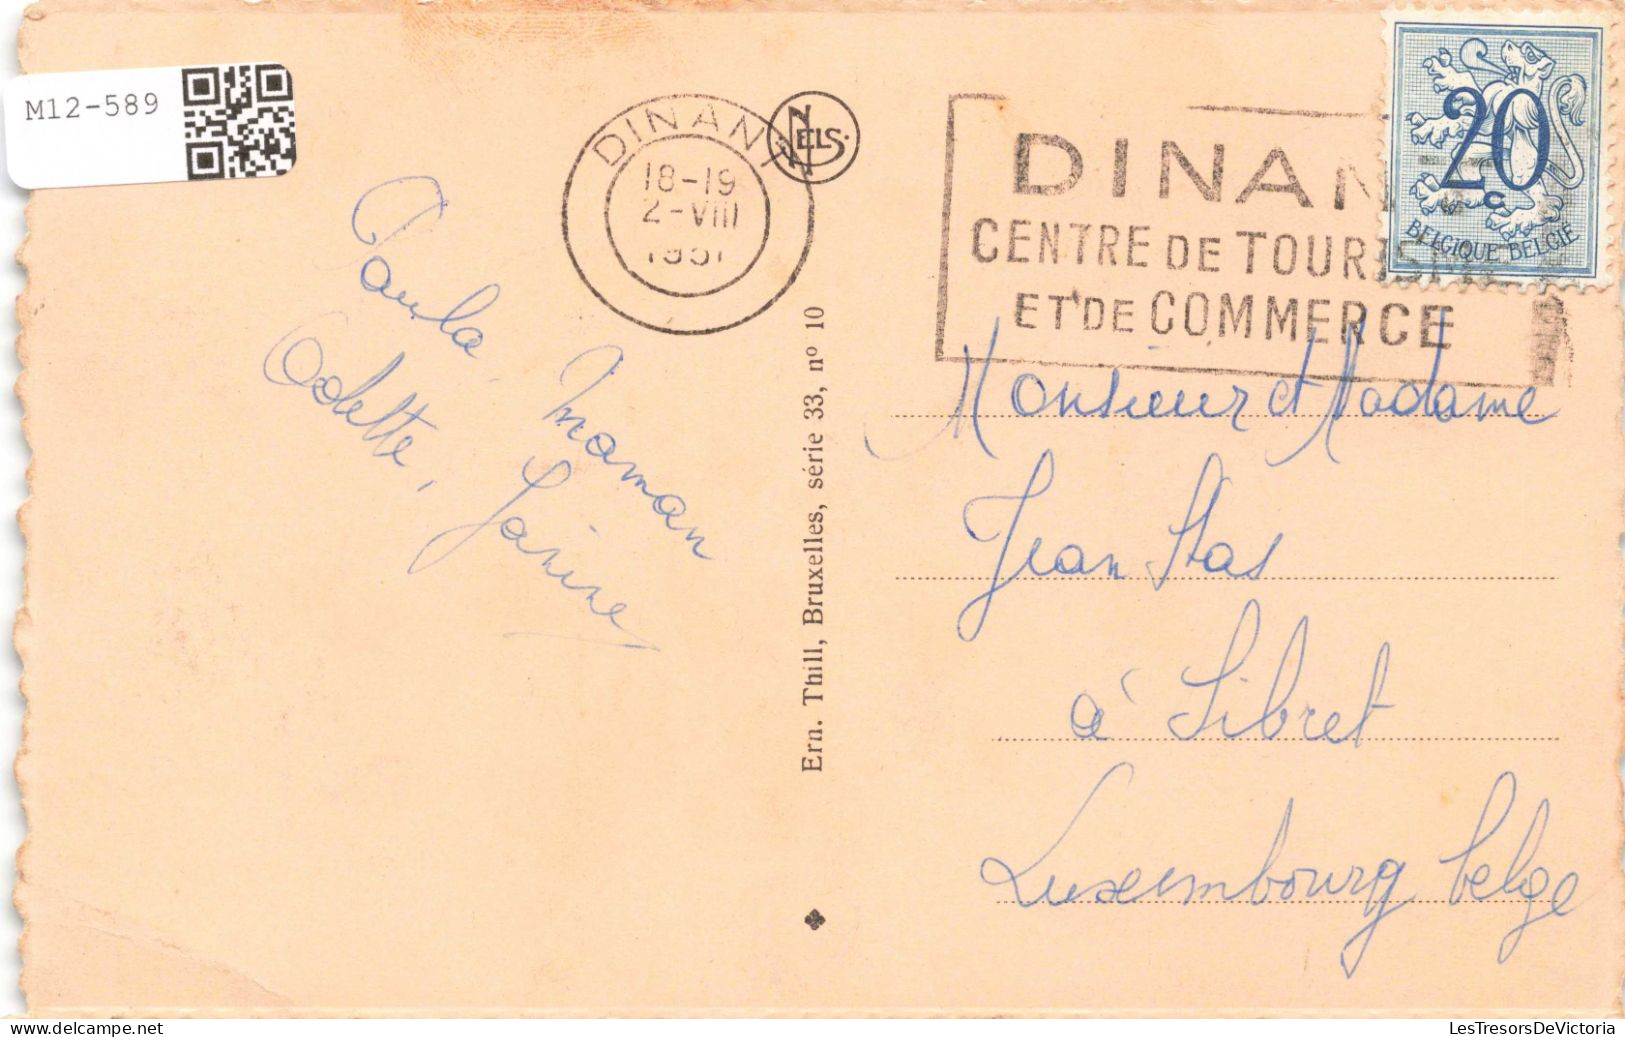 M12-589
DINANT
18-19
2-VIII
1951
NELS.
DINANT
CENTRE DE TOURISME
ET DE COMMERCE
20
c
BELGIQUE BELGIË
Paula, Maman
Odette, Janine
Ern. Thill, Bruxelles, série 33, nº 10
Monsieur et Madame
Jean Stas
à Sibret
Luxembourg belge
LesTresorsDeVictoria